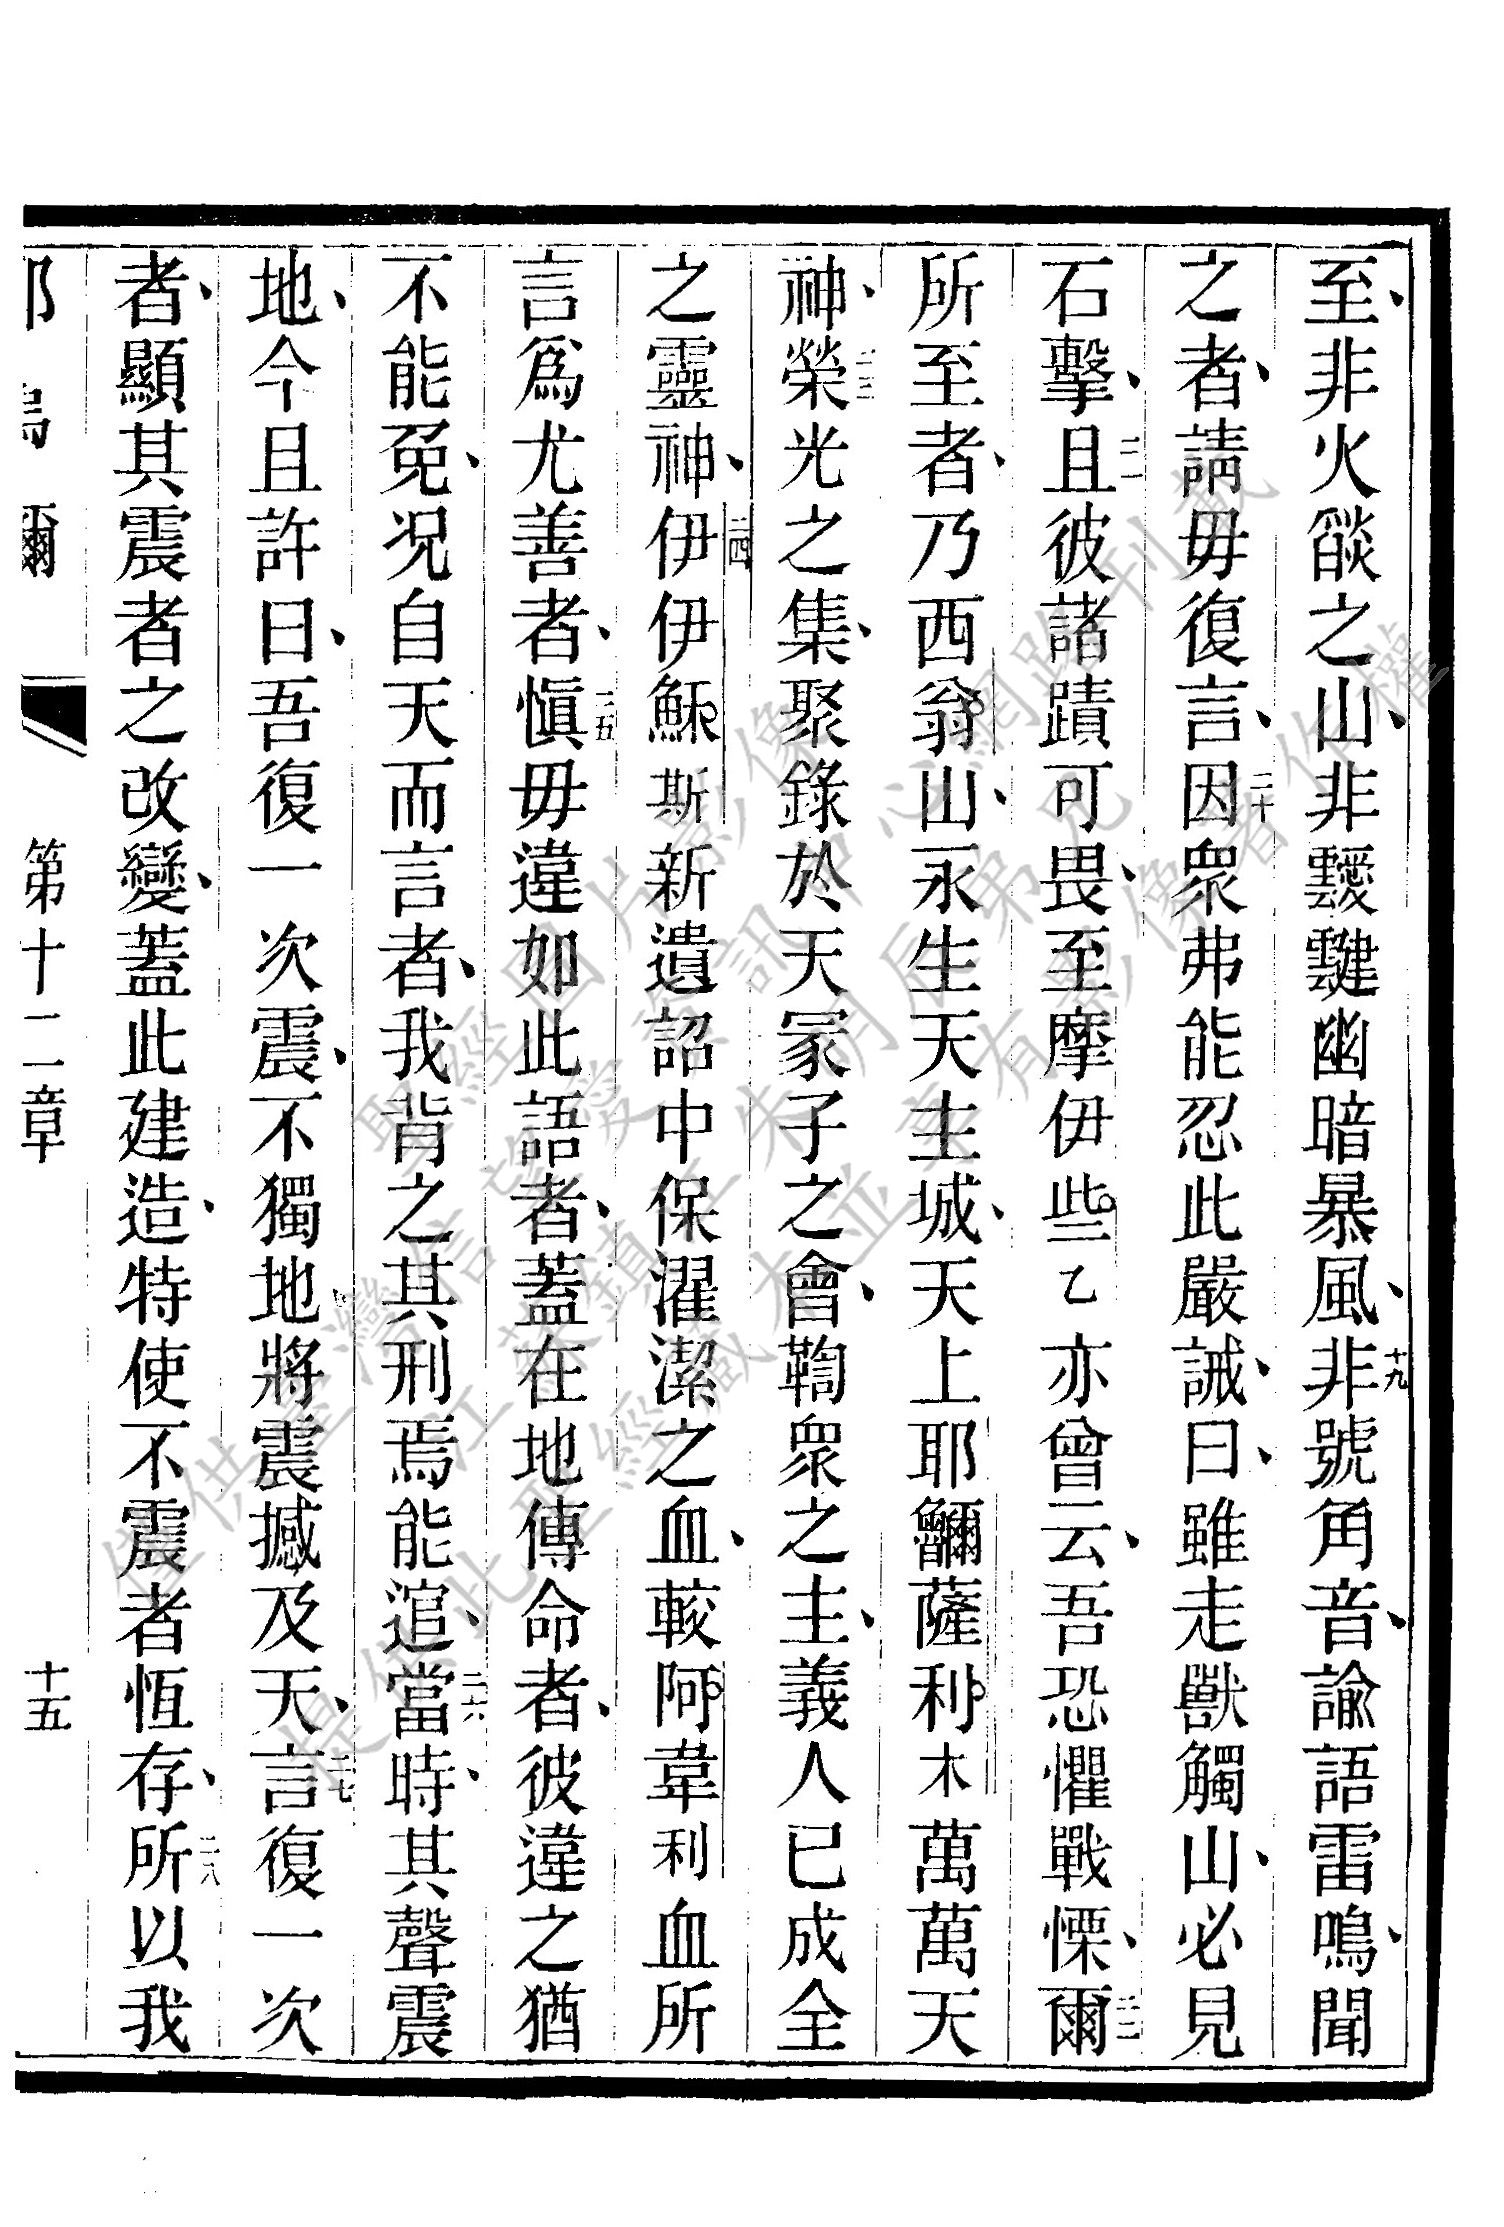 至、非火燄之山、非靉靆幽暗暴風、十九非號角音、諭語雷鳴、聞
之者、請毋復言、二十因眾弗能忍此嚴誡、曰、雖走獸觸山、必見
石擊、二一且彼諸蹟可畏、至摩伊些乙亦曾云、吾恐懼戰慄、二二爾
所至者、乃西翁山、永生天主城、天上耶薩利木萬萬天
神、二三榮光之集、聚錄於天冢子之會、鞫眾之主、義人已成全
之靈神、二四伊伊穌斯新遺詔中保濯潔之血、較阿韋利血所
言爲尤善者、二五慎毋違如此語者、蓋在地傳命者、彼違之猶
不能免、况自天而言者、我背之其刑焉能逭、二六當時、其聲震
地、今且許曰、吾復一次震、不獨地將震撼及天、二七言復一次
者、顯其震者之改變、蓋此建造、特使不震者恆存、二八所以我
第十二章
十五